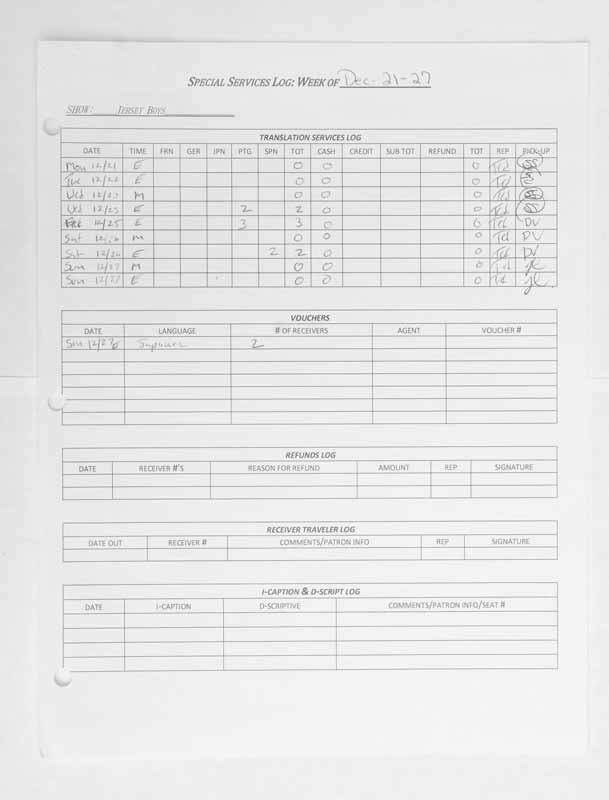 SPECIAL SERVICES LOG: WEEK OF Dec. 21-27
SHOW: JERSEY BOYS
TRANSLATION SERVICES LOG
DATE TIME FRN GER JPN PTG SPN TOT CASH CREDIT SUB TOT REFUND TOT REP PICK-UP
Mon 12/21 E 0 0 0 Ted
Tue 12/22 E 0 0 0 Ted
Wed 12/23 M 0 0 0 Ted
Wed 12/23 E 2 2 0 0 Ted
12/25 E 3 3 0 0 Ted DV
Sat 12/26 M 0 0 0 Ted DV
Sat 12/26 E 2 2 0 0 Ted DV
Sun 12/27 M 0 0 0 Ted
Sun 12/27 E 0 0 0 Ted
VOUCHERS
DATE LANGUAGE # OF RECEIVERS AGENT VOUCHER #
Sun 12/27 Japanese 2
REFUNDS LOG
DATE RECEIVER #'S REASON FOR REFUND AMOUNT REP SIGNATURE
RECEIVER TRAVELER LOG
DATE OUT RECEIVER # COMMENTS/PATRON INFO REP SIGNATURE
I-CAPTION & D-SCRIPT LOG
DATE I-CAPTION D-SCRIPTIVE COMMENTS/PATRON INFO/SEAT #